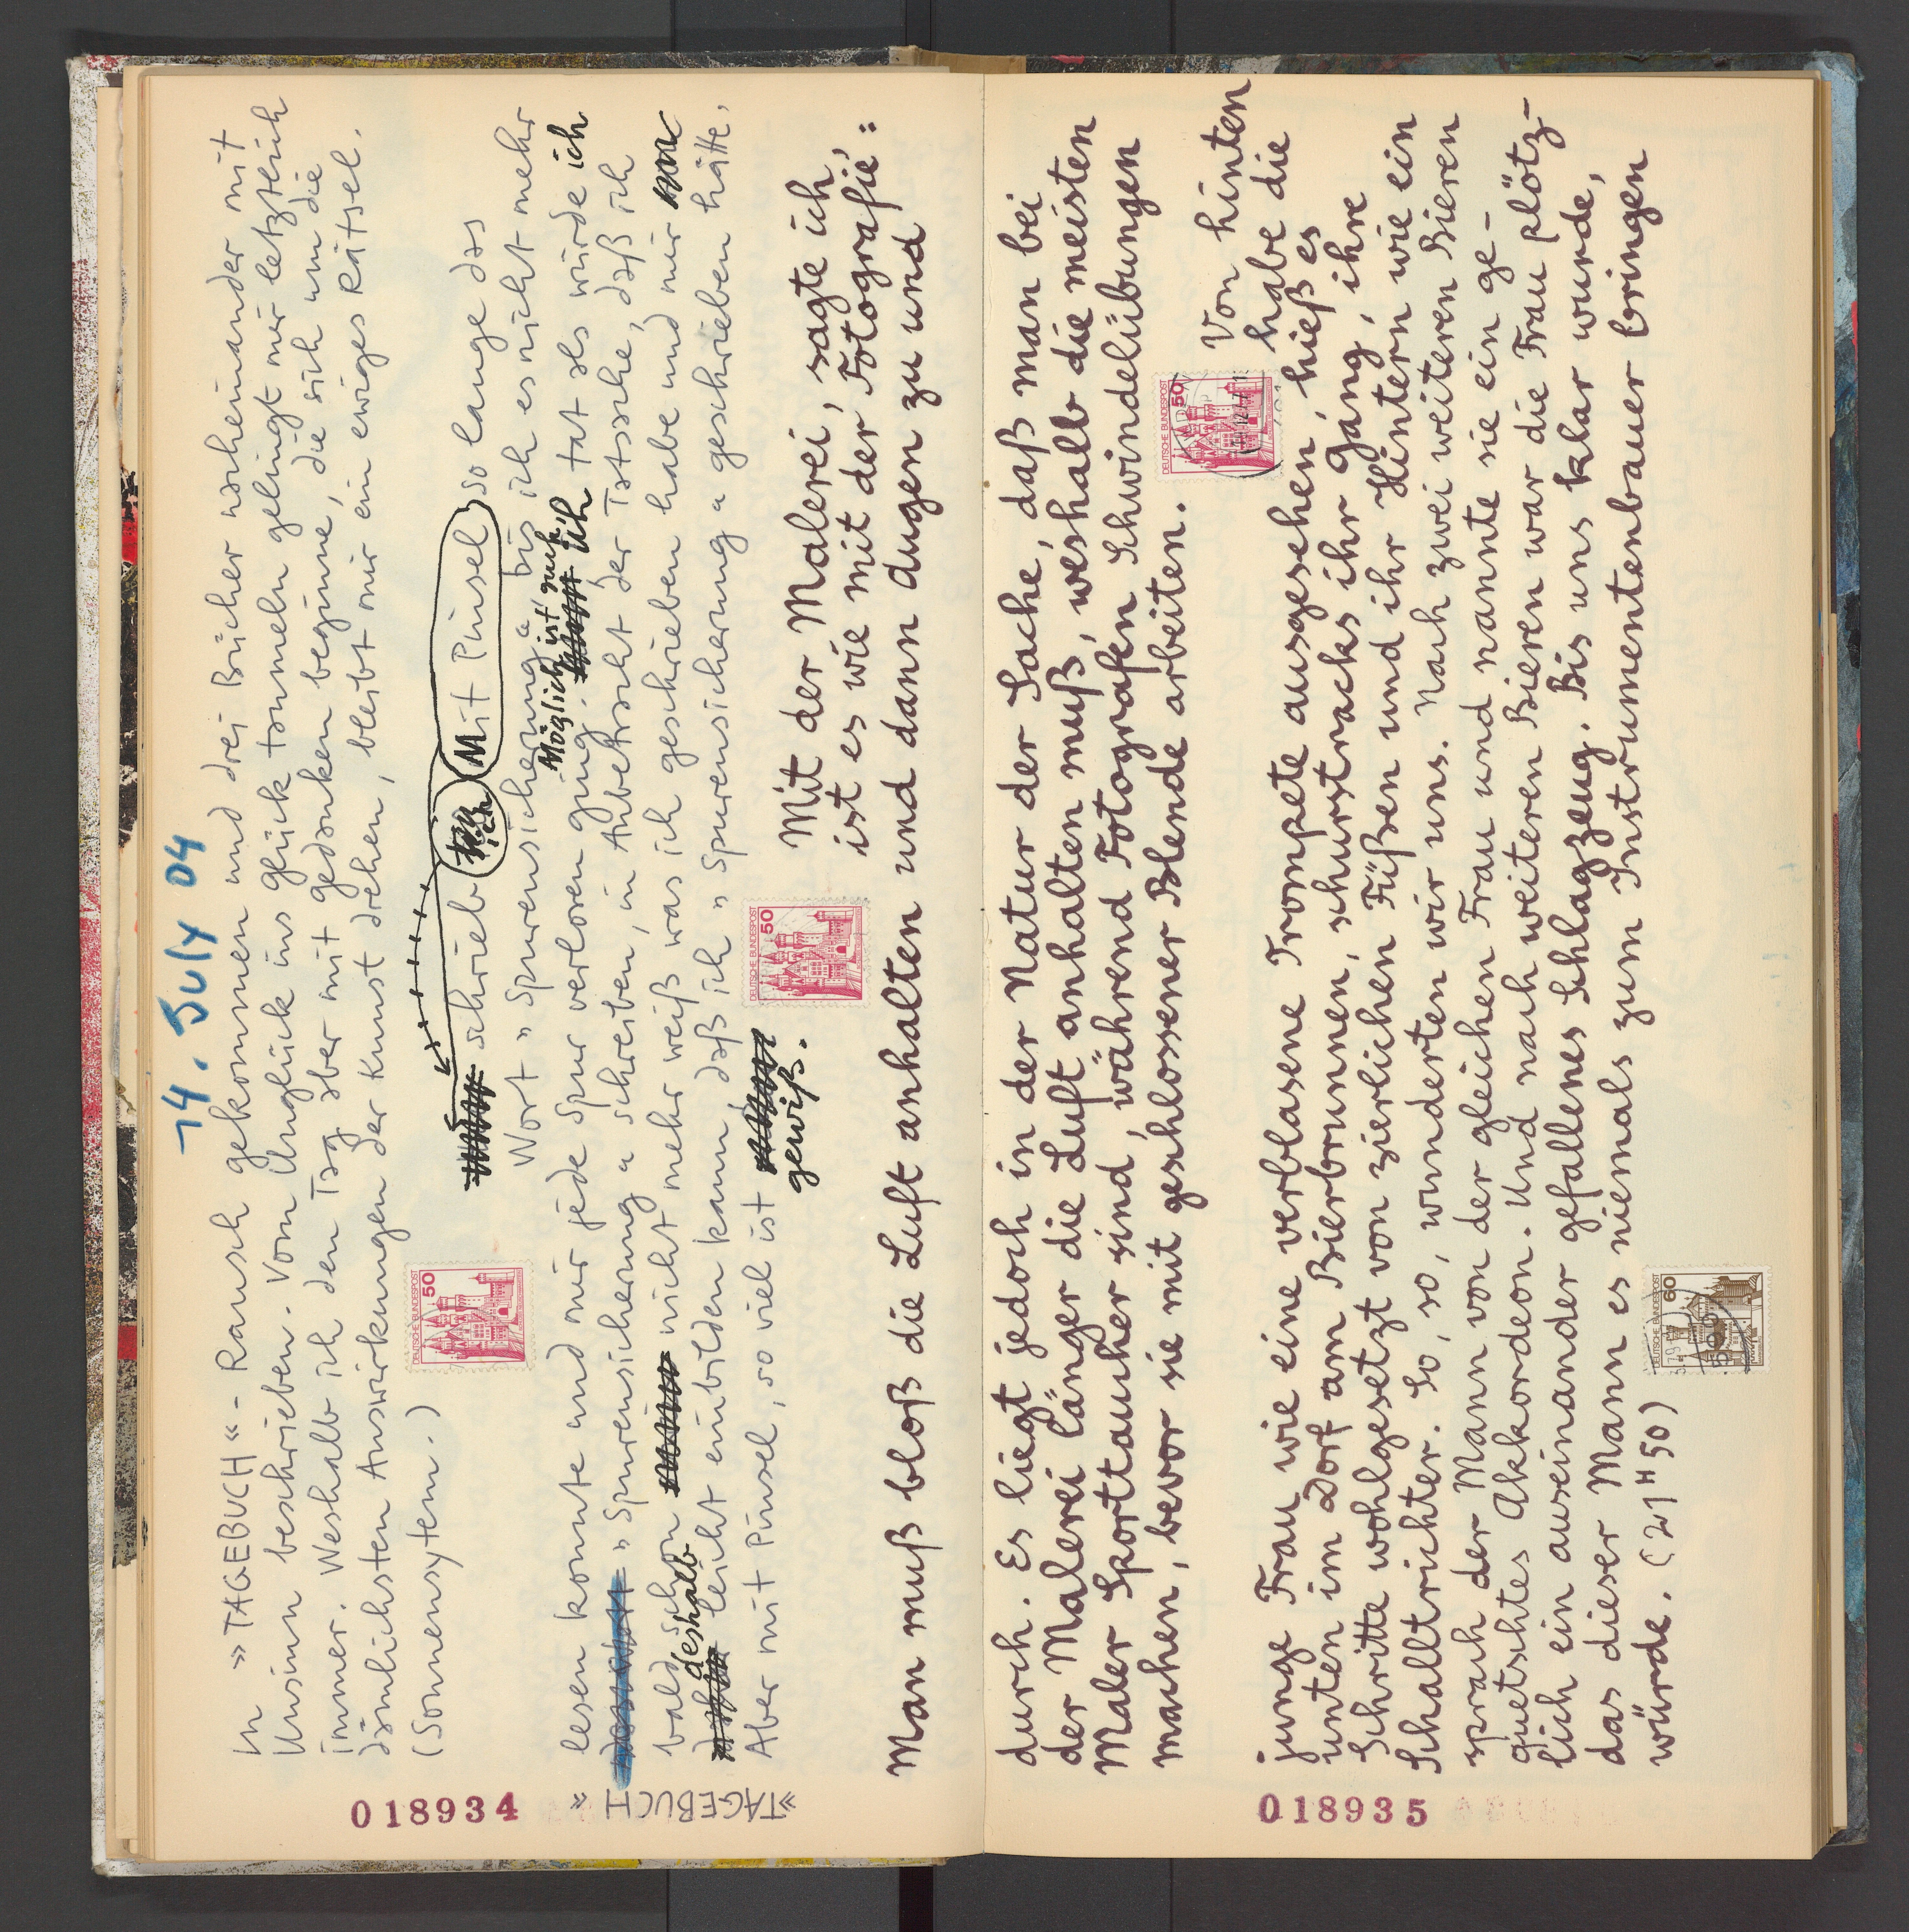 14. July 04
In »TAGEBUCH«-Rausch gekommen und drei Bücher nacheinander mit
Unsinn beschrieben. Vom Unglück ins Glück tommeln gelingt mir letztlich
immer. Weshalb ich den Tag aber mit Gedanken beginne, die sich um die
dämlichsten Auswirkungen der Kunst drehen, bleibt mir ein ewiges Rätsel.
(Sonnensytem.)
schrieb ich Mit Pinsel so lange das
Wort »Spurensicherung« bis ich es nicht mehr
lesen konnte und mir jede Spur verloren ging. Möglich ist auch ich tat als würde ich
»Spurensicherung« schreiben, in Anbetracht der Tatsache, daß ich
bald schon nicht mehr weiß was ich geschrieben habe und mir
deshalb leicht einbilden kann, daß ich »Spurensicherung« geschrieben hätte.
Aber mit Pinsel, so viel ist
gewiß.
Mit der Malerei, sagte ich,
ist es wie mit der Fotografie:
Man muß bloß die Luft anhalten und dann Augen zu und
»TAGEBUCH«
018934
durch. Es liegt jedoch in der Natur der Sache, daß man bei
der Malerei länger die Luft anhalten muß, weshalb die meisten
Maler Sporttaucher sind, während Fotografen Schwindelübungen
machen, bevor sie mit geschlossener Blende arbeiten.
Von hinten
habe die
junge Frau wie eine verblasene Trompete ausgesehen, hieß es
unten im Dorf am Bierbrunnen, schurstracks ihr Gang, ihre
Schritte wohlgesetzt von zierlichen Füßen und ihr Hintern wie ein
Schalltrichter. So, so, wunderten wir uns. Nach zwei weiteren Bieren
sprach der Mann von der gleichen Frau und nannte sie ein ge-
quetschtes Akkordeon. Und nach weiteren Bieren war die Frau plötz-
lich ein auseinander gefallenes Schlagzeug. Bis uns klar wurde,
das dieser Mann es niemals zum Instrumentenbauer bringen
würde. (21H50)
018935
DEUTSCHE BUNDESPOST
50
DEUTSCHE BUNDESPOST
50
DEUTSCHE BUNDESPOST
50
DEUTSCHE BUNDESPOST
60